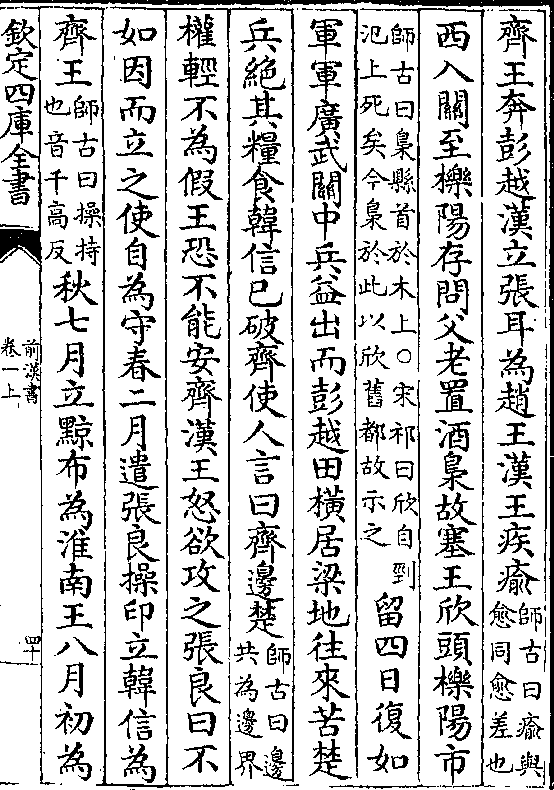 齊王奔彭越漢立張耳為趙王漢王疾瘉師古曰瘉與愈同愈差也
西入關至櫟陽存問父老置酒梟故塞王欣頭櫟陽市
師古曰梟縣首於木上○宋祁曰欣自剄汜上死矣今梟於此以欣舊都故示之留四日復如
軍軍廣武關中兵益出而彭越田橫居梁地往來苦楚
兵絕其糧食韓信已破齊使人言曰齊邊楚師古曰邊共為邊界
權輕不為假王恐不能安齊漢王怒欲攻之張良曰不
如因而立之使自為守春二月遣張良操印立韓信為
齊王師古曰操持也音千高反秋七月立黥布為淮南王八月初為
欽定四庫全書
前漢書
卷一上
四十